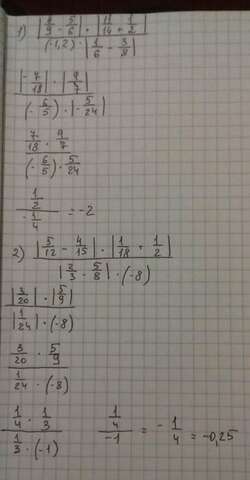 1) |4/9 - 5/6| · |11/14 + 1/2|
(-1,2) · |1/6 - 3/8|
|-7/18| · |9/7|
(-6/5) · |-5/24|
7/18 · 9/7
(-6/5) · 5/24
1/2
-1/4 = -2
2) |5/12 - 4/15| · |1/18 + 1/2|
|2/3 - 5/8| · (-8)
|3/20| · |5/9|
|1/24| · (-8)
3/20 · 5/9
1/24 · (-8)
1/4 · 1/3 1/4
1/3 · (-1) -1 = - 1/4 = -0,25